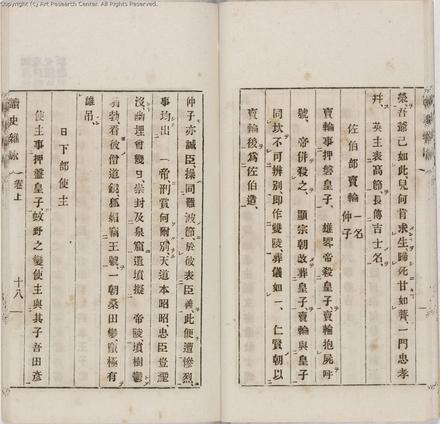 Copyright (c) Art Research Center. All Rights Reserved.
榮、吾爺已如此、兒何肯求生、歸死甘如薺、一門忠孝
幷、英主表高節、長傳吉士名、
佐伯部賣輪 一名仲子
賣輪事押盤皇子、雄畧帝殺皇子、賣輪抱屍呼
號、帝併殺之、顯宗朝改葬皇子、賣輪與皇子
同坎不可辨別、卽作雙陵、葬儀如一、仁賢朝以
賣輪後爲佐伯造、
仲子亦誠臣、操同難波節、於彼表臣義、此便遭慘烈、
事均出一帝、刑賞何爾別、天道本昭昭、忠臣豈
沒、幽埋曾幾日、崇封及泉窟、遺墳擬帝陵、墳樹鬱
看彼僧道鏡、狐媚竊王號、一朝桑田變、極有
誰弔、
日下部使主
使主事押盤皇子、蚊野之變、使主與其子吾田彥
讀史雜詠 卷上 十八